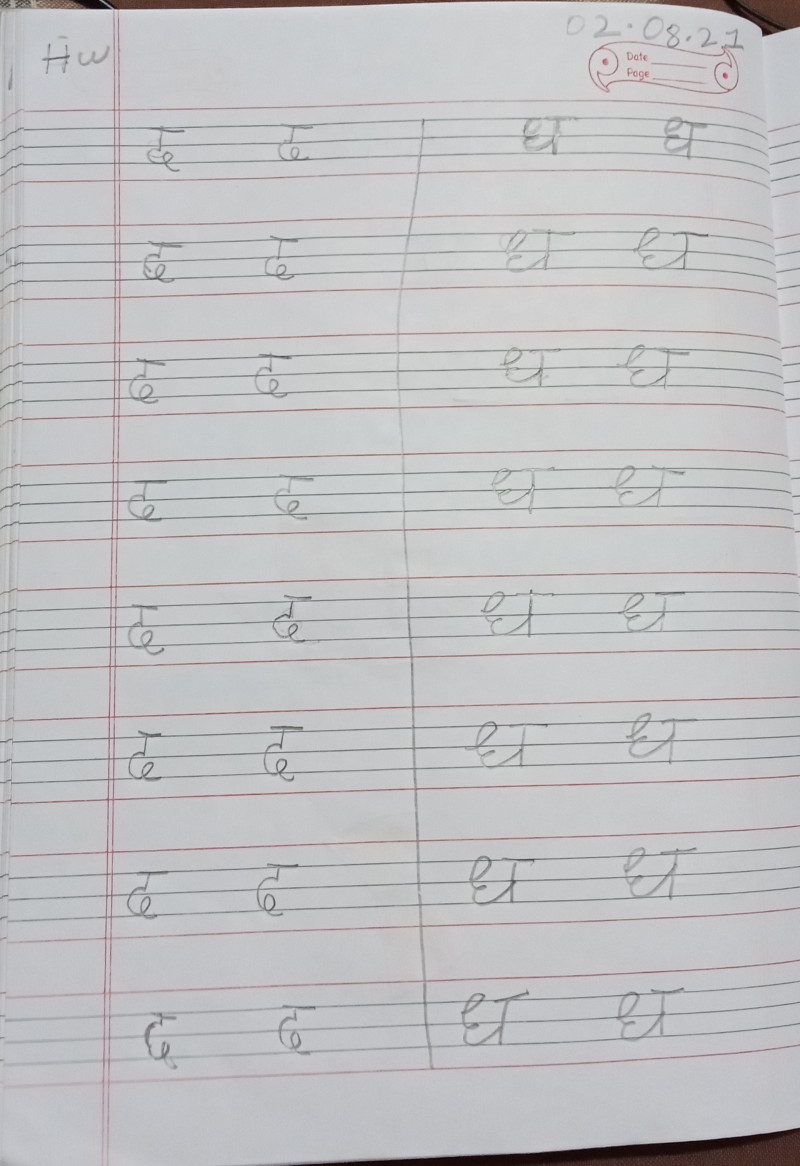 HW
02.08.21
Date
Page
द द ध ध
द द ध ध
द द ध ध
द द ध ध
द द ध ध
द द ध ध
द द ध ध
द द ध ध